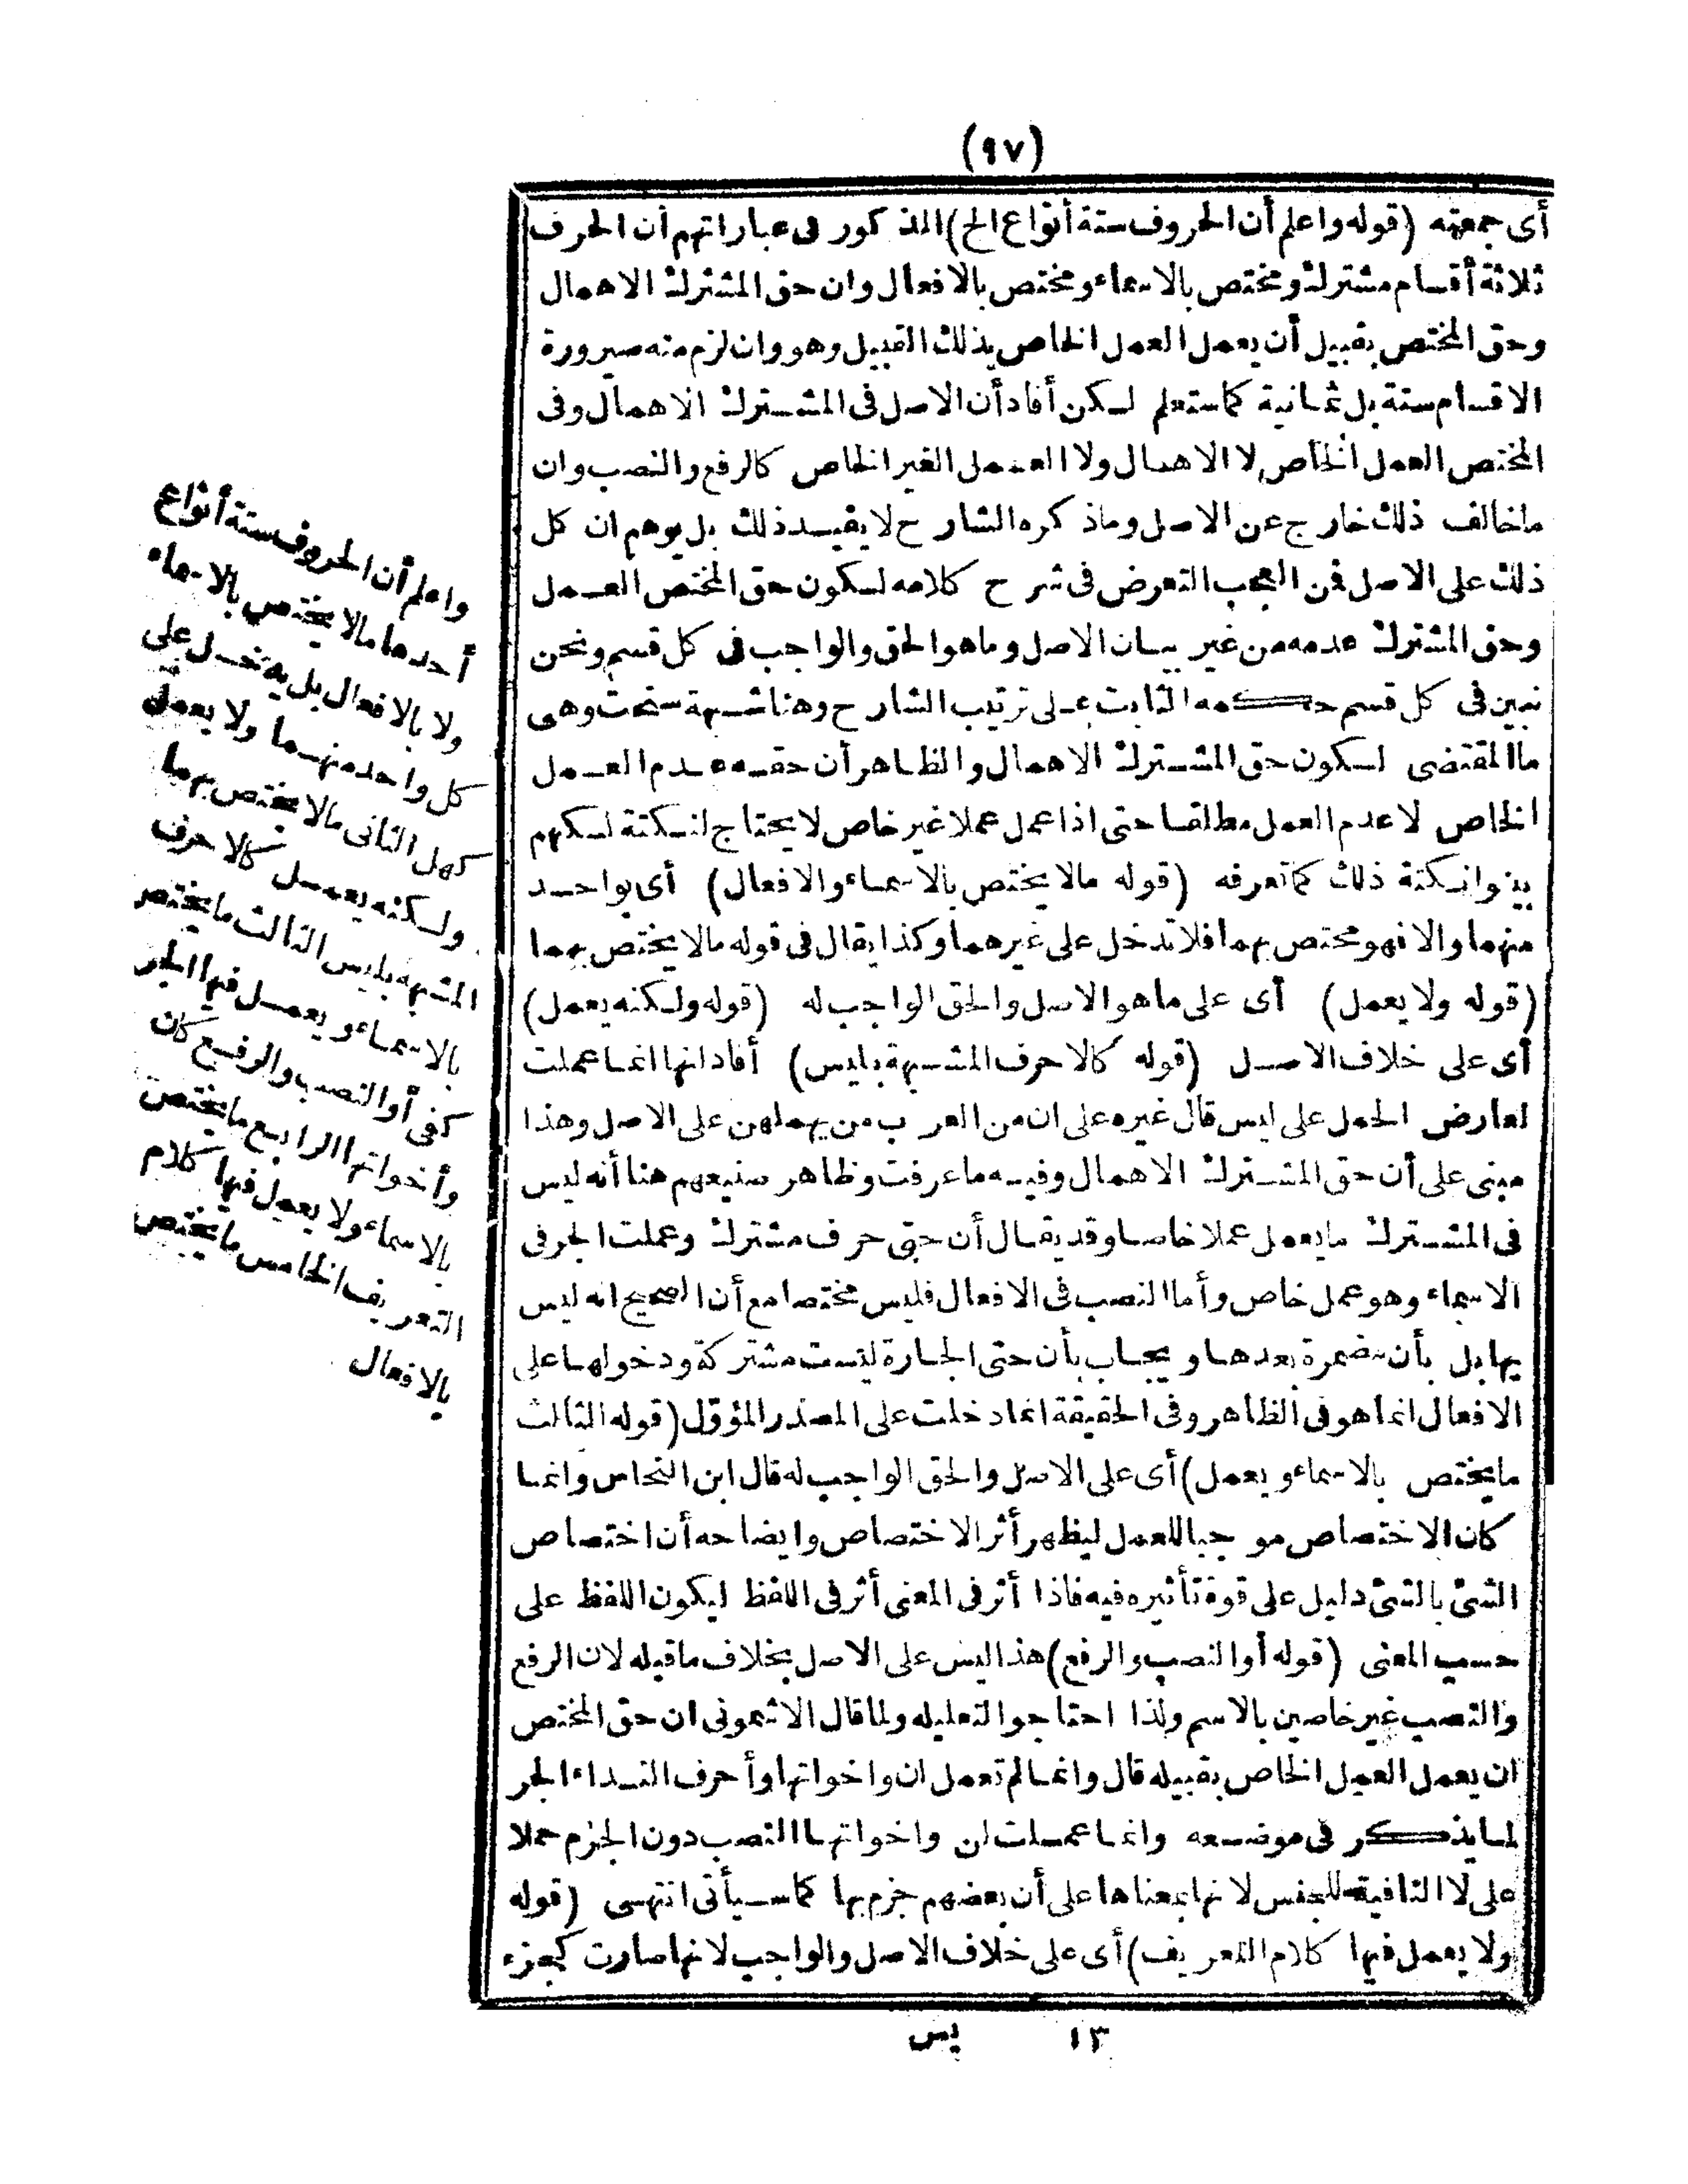 (٩٧)
أى جمعته (قوله واعلم أن الحروف ستة أنواع الخ) المذكور فى عباراتهم أن الحرف
ثلاثة أقسام مشترك ومختص بالاسماء ومختص بالافعال وان حق المشترك الاهمال
وحق المختص بقبيل أن يعمل العمل الخاص بذلك القبيل وهو وان لزم منه صيرورة
الاقسام ستة بل ثمانية كما ستعلم لكن أفاد أن الاصل فى المشترك الاهمال وفى
المختص العمل الخاص لا الاهمال ولا العمل الغير الخاص كالرفع والنصب وان
ما خالف ذلك خارج عن الاصل وما ذكره الشارح لا يفيد ذلك بل يوهم ان كل
ذلك على الاصل فمن العجب التعرض فى شرح كلامه لكون حق المختص العمل
وحق المشترك عدمه من غير بيان الاصل وما هو الحق والواجب فى كل قسم ونحن
نبين فى كل قسم حكمه الثابت على ترتيب الشارح وهنا شبهة سنحت وهى
ما المقتضى لكون حق المشترك الاهمال والظاهر أن حقه عدم العمل
الخاص لا عدم العمل مطلقا حتى اذا عمل عملا غير خاص لا يحتاج لنكتة لكنهم
بينوا نكتة ذلك كما تعرفه (قوله مالا يختص بالاسماء والافعال) أى بواحد
منهما والا فهو مختص بهما فلا تدخل على غيرهما وكذا يقال فى قوله مالا يختص بهما
(قوله ولا يعمل) أى على ما هو الاصل والحق الواجب له (قوله ولكنه يعمل)
أى على خلاف الاصل (قوله كالاحرف المشبهة بليس) أفاد انها انما عملت
لعارض الحمل على ليس قال غيره على ان من العرب من يهملهن على الاصل وهذا
مبنى على أن حق المشترك الاهمال وفيه ما عرفت وظاهر صنيعهم هنا أنه ليس
فى المشترك ما يعمل عملا خاصا وقد يقال أن حتى حرف مشترك وعملت الجر فى
الاسماء وهو عمل خاص وأما النصب فى الافعال فليس مختصا مع أن الصحيح انه ليس
بها بل بأن مضمرة بعدها ويجاب بأن حتى الجارة ليست مشتركة ودخولها على
الافعال انما هو فى الظاهر وفى الحقيقة انما دخلت على المصدر المؤوّل (قوله الثالث
ما يختص بالاسماء ويعمل) أى على الاصل والحق الواجب له قال ابن النحاس وانما
كان الاختصاص موجبا للعمل ليظهر أثر الاختصاص وايضاحه أن اختصاص
الشئ بالشئ دليل على قوة تأثيره فيه فاذا أثر فى المعنى أثر فى اللفظ ليكون اللفظ على
حسب المعنى (قوله أو النصب والرفع) هذا ليس على الاصل بخلاف ما قبله لان الرفع
والنصب غير خاصين بالاسم ولذا احتاجوا لتعليله ولما قال الاشمونى ان حق المختص
ان يعمل العمل الخاص بقبيله قال وانما لم تعمل ان واخواتها وأحرف النداء الجر
لما يذكر فى موضعه وانما عملت لن واخواتها النصب دون الجزم حملا
على لا النافية للجنس لانها بمعناها على أن بعضهم جزم بها كما سيأتى انتهى (قوله
ولا يعمل فيها كلام التعريف) أى على خلاف الاصل والواجب لانها صارت كجزء
واعلم أن الحروف ستة أنواع
أحدها مالا يختص بالاسماء
ولا بالافعال بل يدخل على
كل واحد منهما ولا يعمل
كهل الثانى مالا يختص بهما
ولكنه يعمل كالاحرف
المشبهة بليس الثالث ما يختص
بالاسماء ويعمل فيها الجر
كفى أو النصب والرفع كان
وأخواتها الرابع ما يختص
بالاسماء ولا يعمل فيها كلام
التعريف الخامس ما يختص
بالافعال
١٣ يس